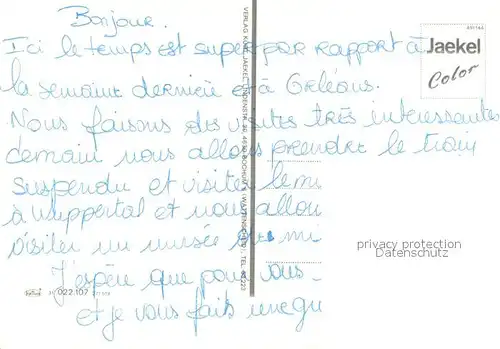 Bonjour.
Ici le temps est super par rapport à
la semaine dernière et à Orléans.
Nous faisons des visites très intéressantes
demain nous allons prendre le train
suspendu et visiter le mi
à wuppertal et nous allon
visiter un musée
J'espère que pour vous
et je vous fais une gu
Jaekel
Color
privacy protection
Datenschutz
022.107
VERLAG KURT JAEKEL
4630 BOCHUM 6 (WATTENSCHEID), TEL.